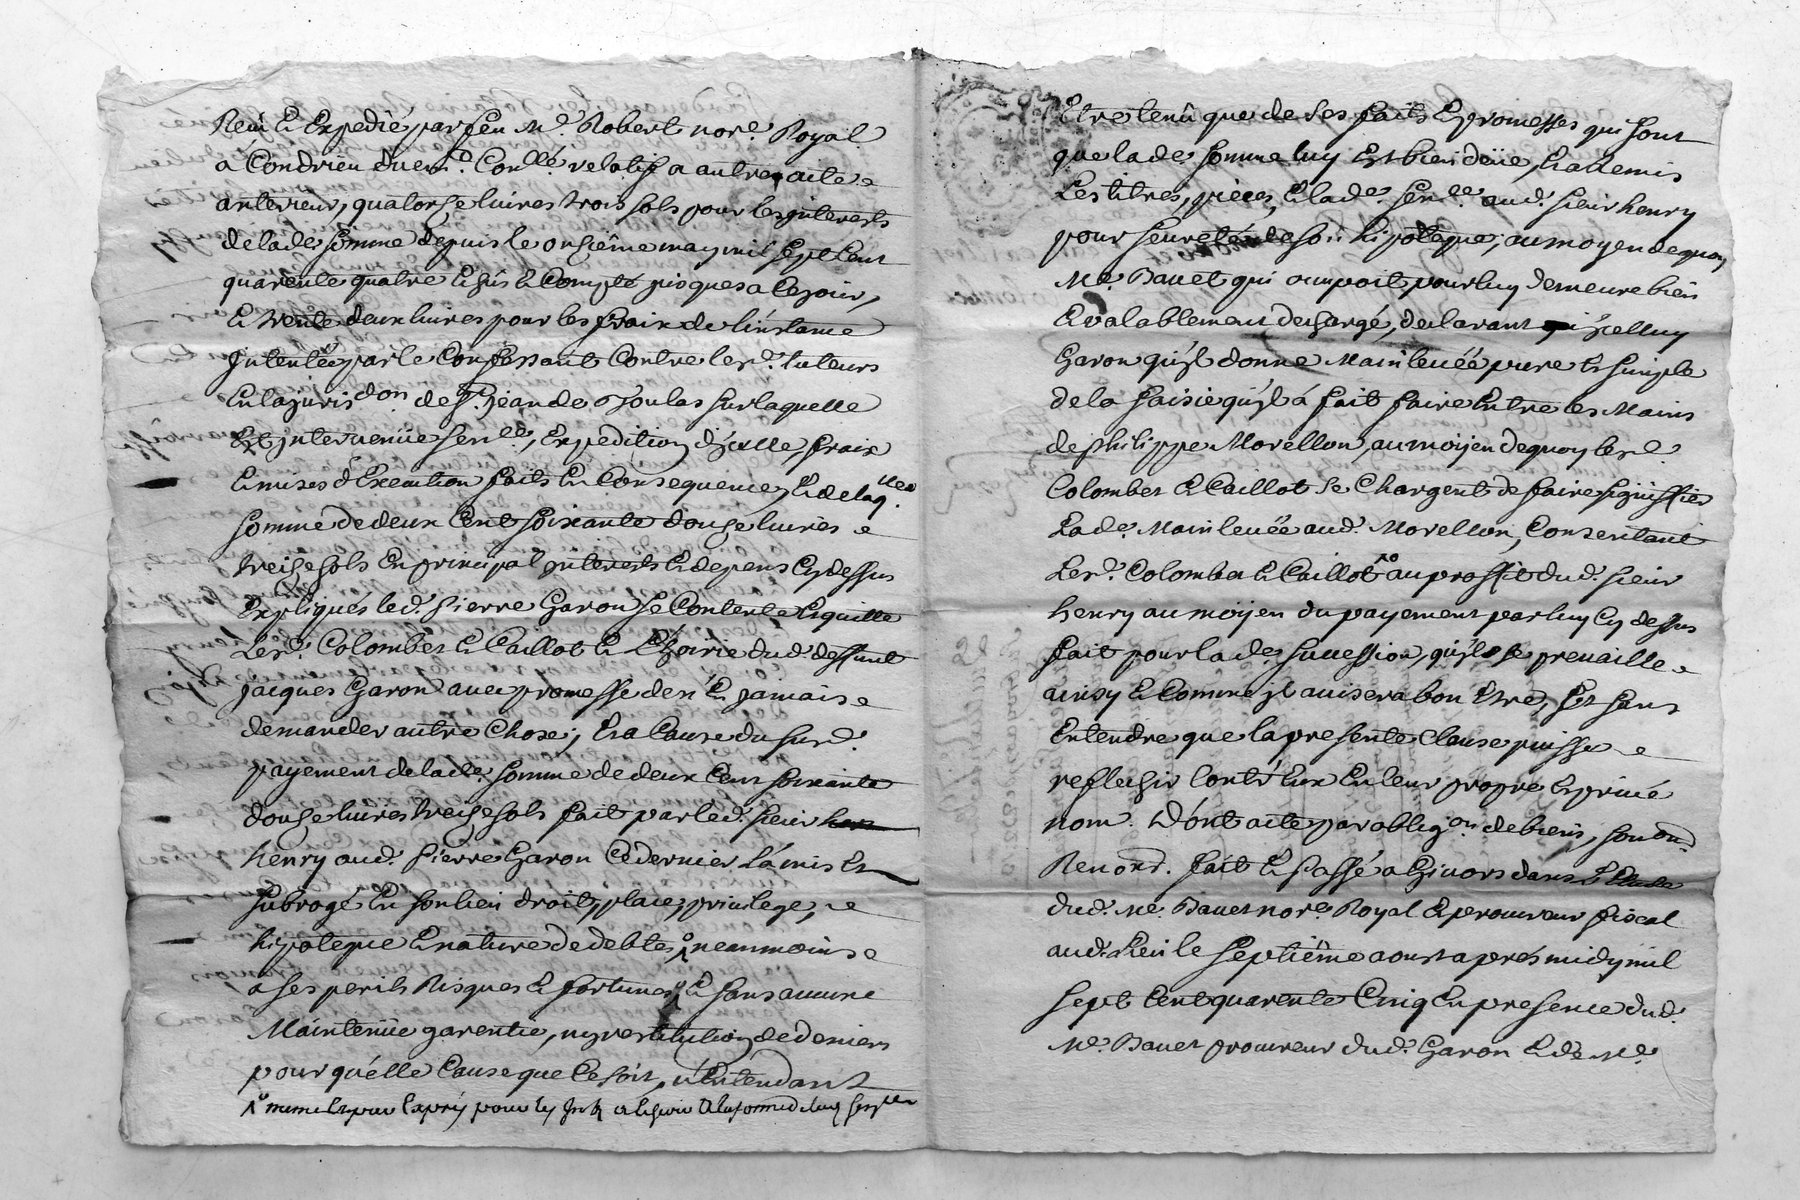 Reçû Et Expedié par feu Me. Robert nore. Royal
a Condrieu du en d. Conllé. relatif a autre acte
anterieur, quatorze livres trois sols pour les jnterests
de lade. somme depuis le onzieme may mil sept Cent
quarente quatre Echûs Et Compté jusques a Ce jour,
Et trente deux livres pour les fraix de l'instance
Jntentée par le Confessant Contre lesd. tuteurs
En la jurisdon. de St. jean de Toulas sur laquelle
Est jntervenüe senlle, Expedition d'jcelle, fraix
Et mises d'Execution faits En Consequence, Et de laqlle
somme de deux Cent soixante douze livres
treize sols En principal jnterests Et depens Cy dessus
Expliqués led. Pierre Garon se Contente Et quitte
Lesd. Colombet Et Caillot Et L'hoirie dud. deffunt
jacques Garon avec promesse de n'En jamais
demander autre Chose, Et a Cause du susd.
payement de lade. somme de deux Cent soixante
douze livres treize sols fait par led. sieur
henry aud. Pierre Garon Ce dernier L'a mis Et
subrogé En son lieu droit, place, privilege,
hipoteque Et nature de debte, neanmoins
a ses perils Risques Et fortunes Et sans aucune
Maintenüe garentie, ny restitution de deniers
pour qu'elle Cause que Ce soit, n'Entendant
Etre tenû que de ses faits Et promesses qui sont
que lade. somme luy Est bien düe, Et a Remis
Les titres, pieces, Et lade. senle. aud. sieur henry
pour seureté de son hipoteque, au moyen de quoy
Me. Bavet qui ocupoit pour luy demeure bien
Et valablement dechargé, declarant jcelluy
Garon qu'jl donne Main levée pure Et simple
de la saisie qu'jl á fait faire Entre les Mains
de Philippe Morellon, au moijen de quoy lesd.
Colombet Et Caillot se Chargent de faire signiffier
Lade. Main levée aud. Morellon, Consentant
Lesd. Colombet Et Caillot au proffit dud. sieur
henry au moyen du payement par luy Cy dessus
fait pour lade. succession, qu'jl se prevaille
ainsy Et Comme jl avisera bon Etre, Et sans
Entendre que la presente Clause puisse
reflechir Contr'Eux En leur propre Et privé
nom. Dont acte par obligon. de biens, soumon.
Renond. fait Et Passé a Givors dans
dud. Me. Bavet nore. Royal Et procureur fiscal
aud. Lieu le septiême aoust aprés midy mil
sept Cent quarente Cinq En presence dud.
Me. Bavet procureur dud. Garon Et de Me.